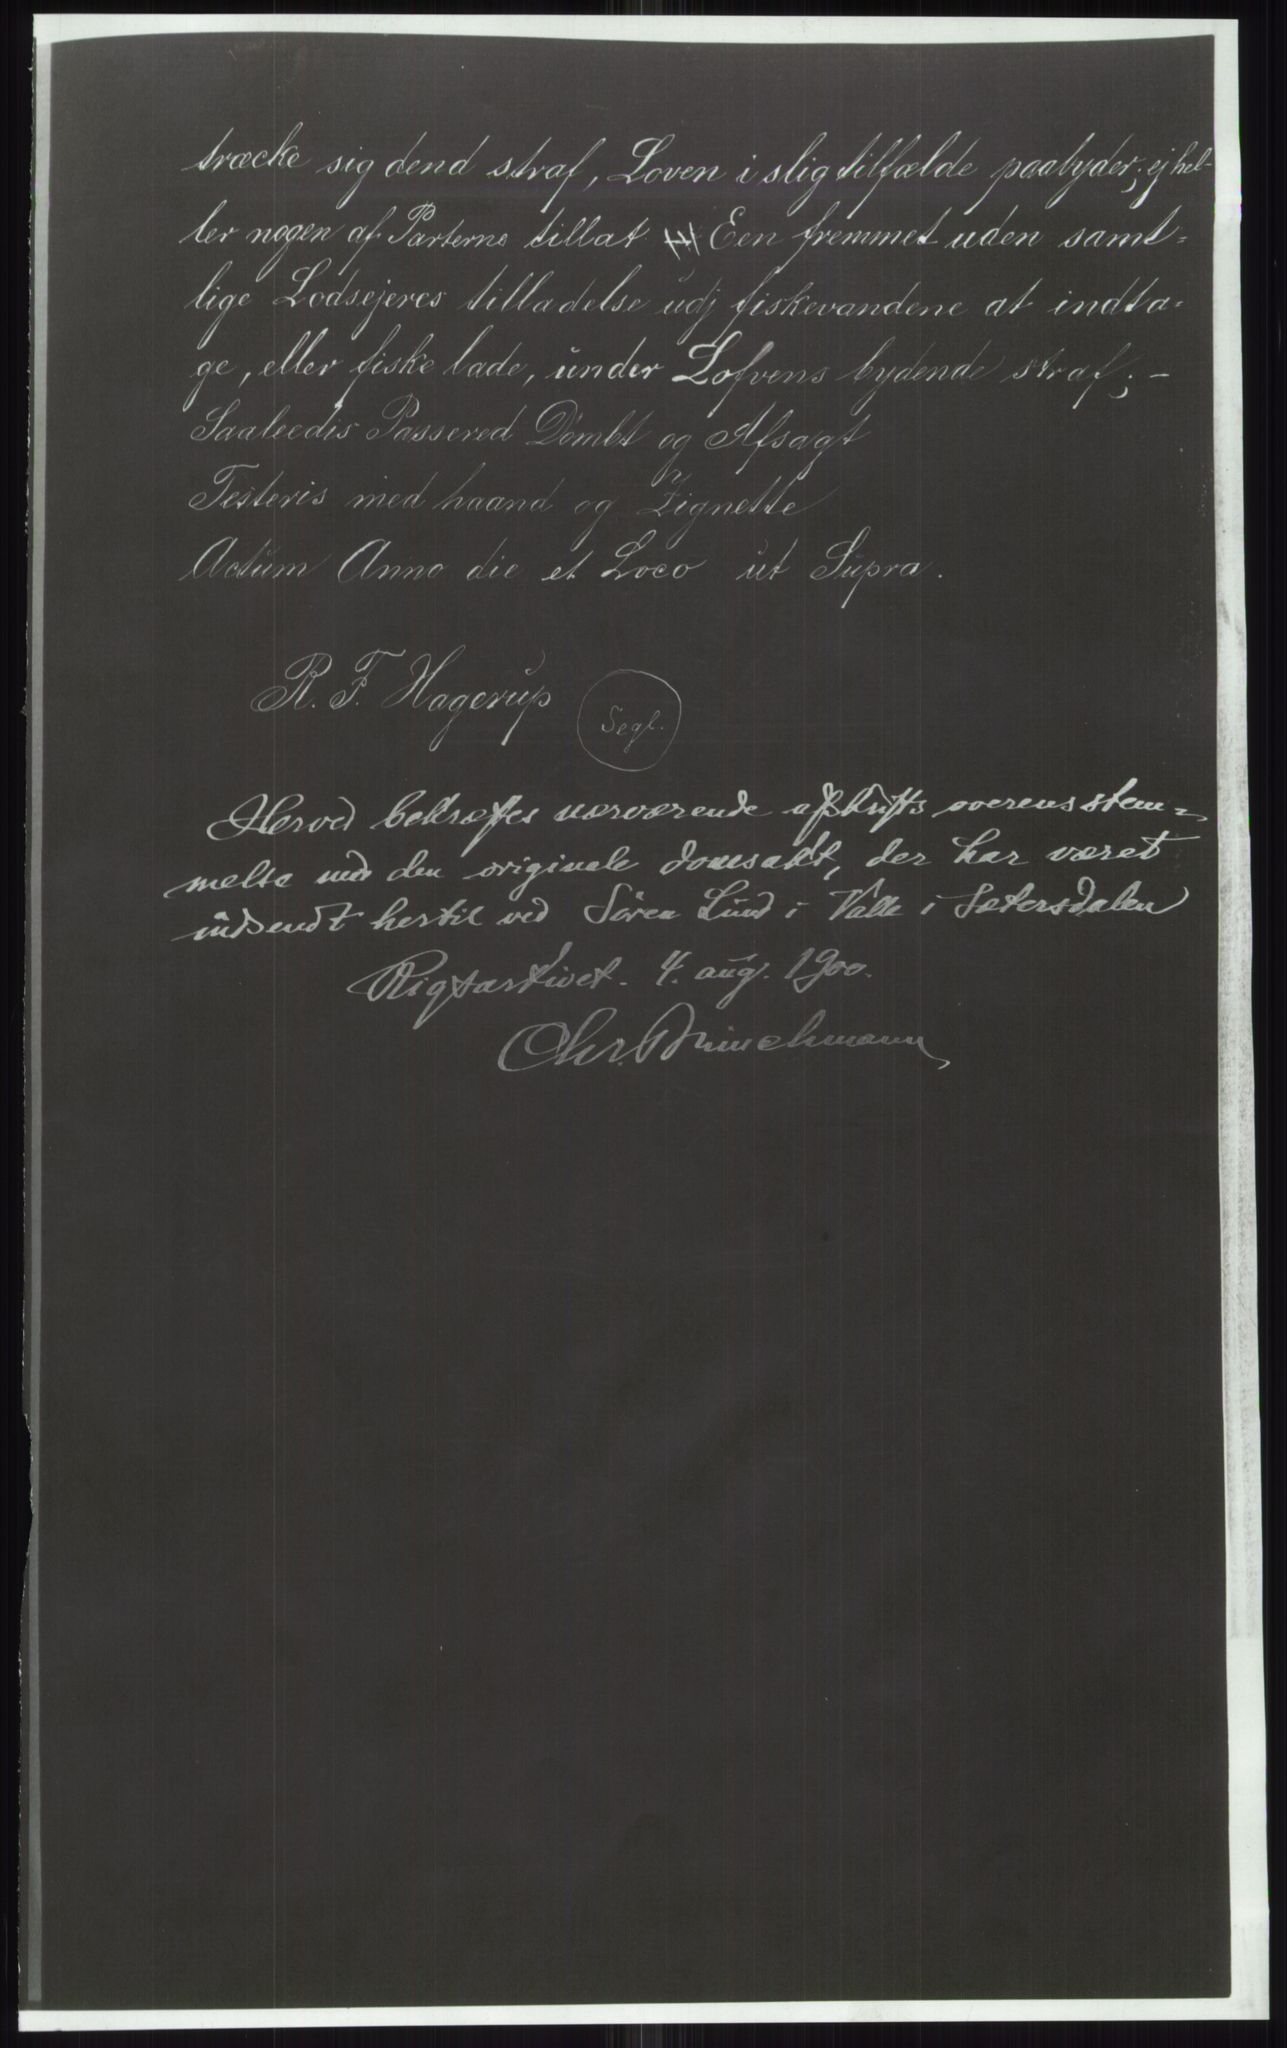 træcke sig dend straf, Loven i slig tilfælde paabyder; ej hel-
ler nogen af Parterne tillat Een fremmet uden samt=
lige Lodsejeres tilladelse udj fiskevandene at indta=
ge, eller fiske lade, under Lofvens bydende straf; -
Saaleedis Passered Dømbt og Afsagt
Testeris med haand og Zignette
Actum Anno die et Loco ut Supra.
R. F. Hagerup
Segl.
Herved bekræftes nærværende afskrifts overensstem=
melse med den originale domsakt, der har været
indsendt hertil ved Søren Lund i Valle i Sætersdalen
Rigsarkivet. 4. aug. 1900.
Chr. Brinchmann